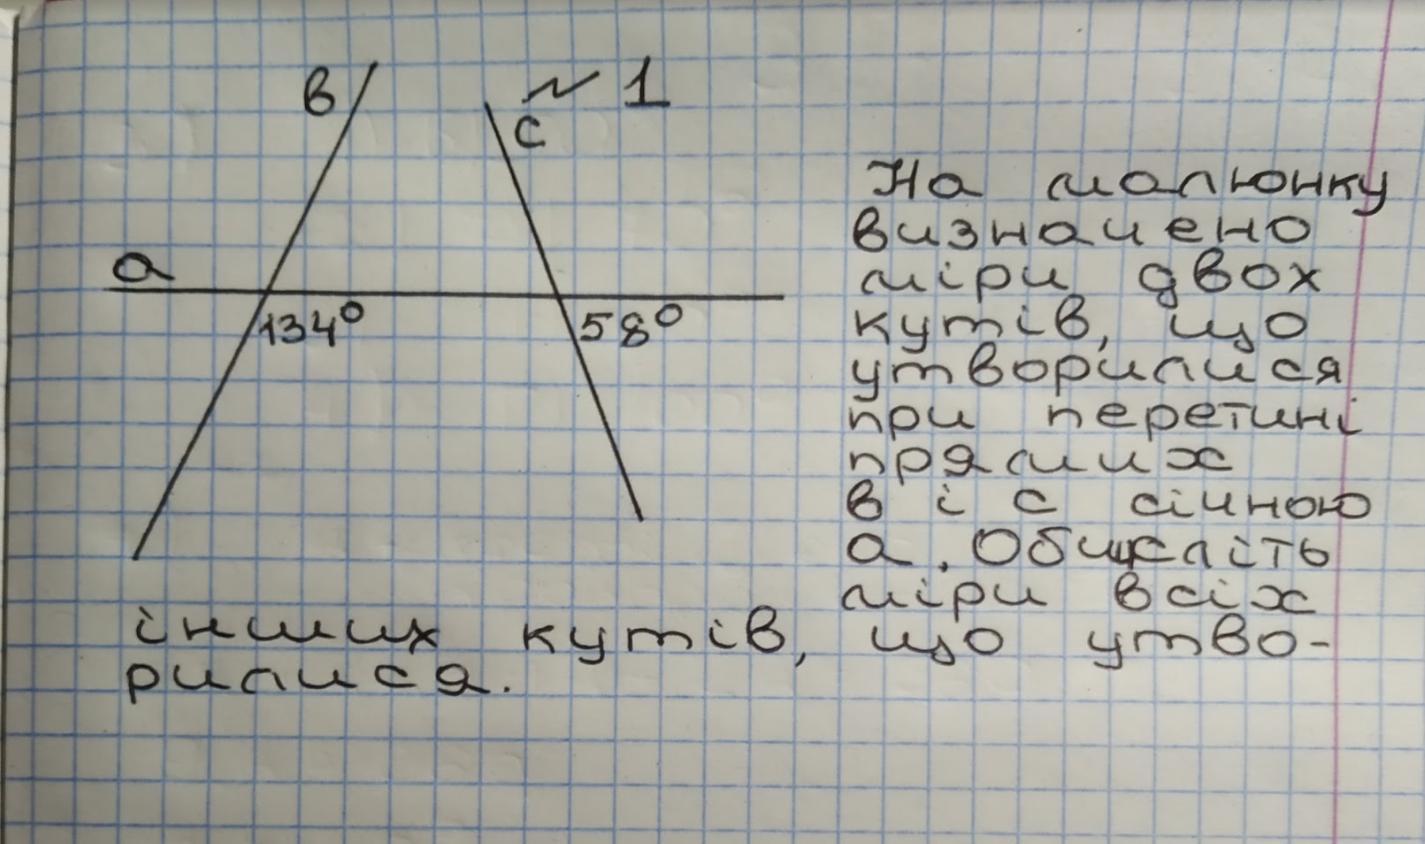 в
с
~ 1
а
134°
58°
На малюнку
визначено
міри двох
кутів, що
утворилися
при перетині
прямих
в і с січною
а. Обчисліть
міри всіх
інших кутів, що утво-
рилися.